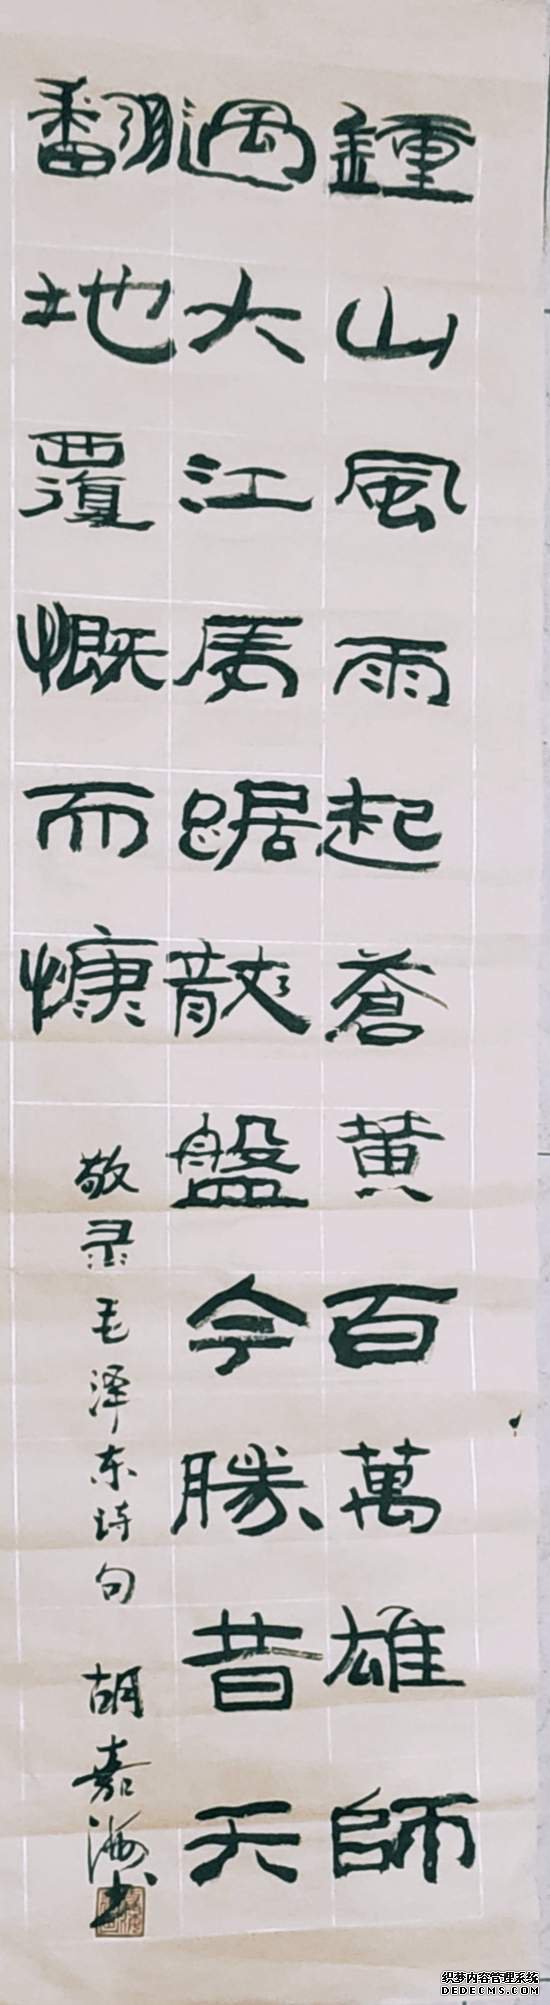 鍾山風雨起蒼黄百萬雄師
過大江虎踞龍盤今勝昔天
翻地覆慨而慷
敬录毛泽东诗句 胡嘉海书
织梦内容管理系统
DEDECMS.COM